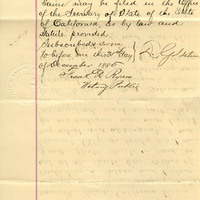 same may be filed in the Office
of the Secretary of State of the State
of California, as by law and
statute provided.
Subscribed & sworn
to before me this 31 day
of December 1886
Frank R
Notary Public